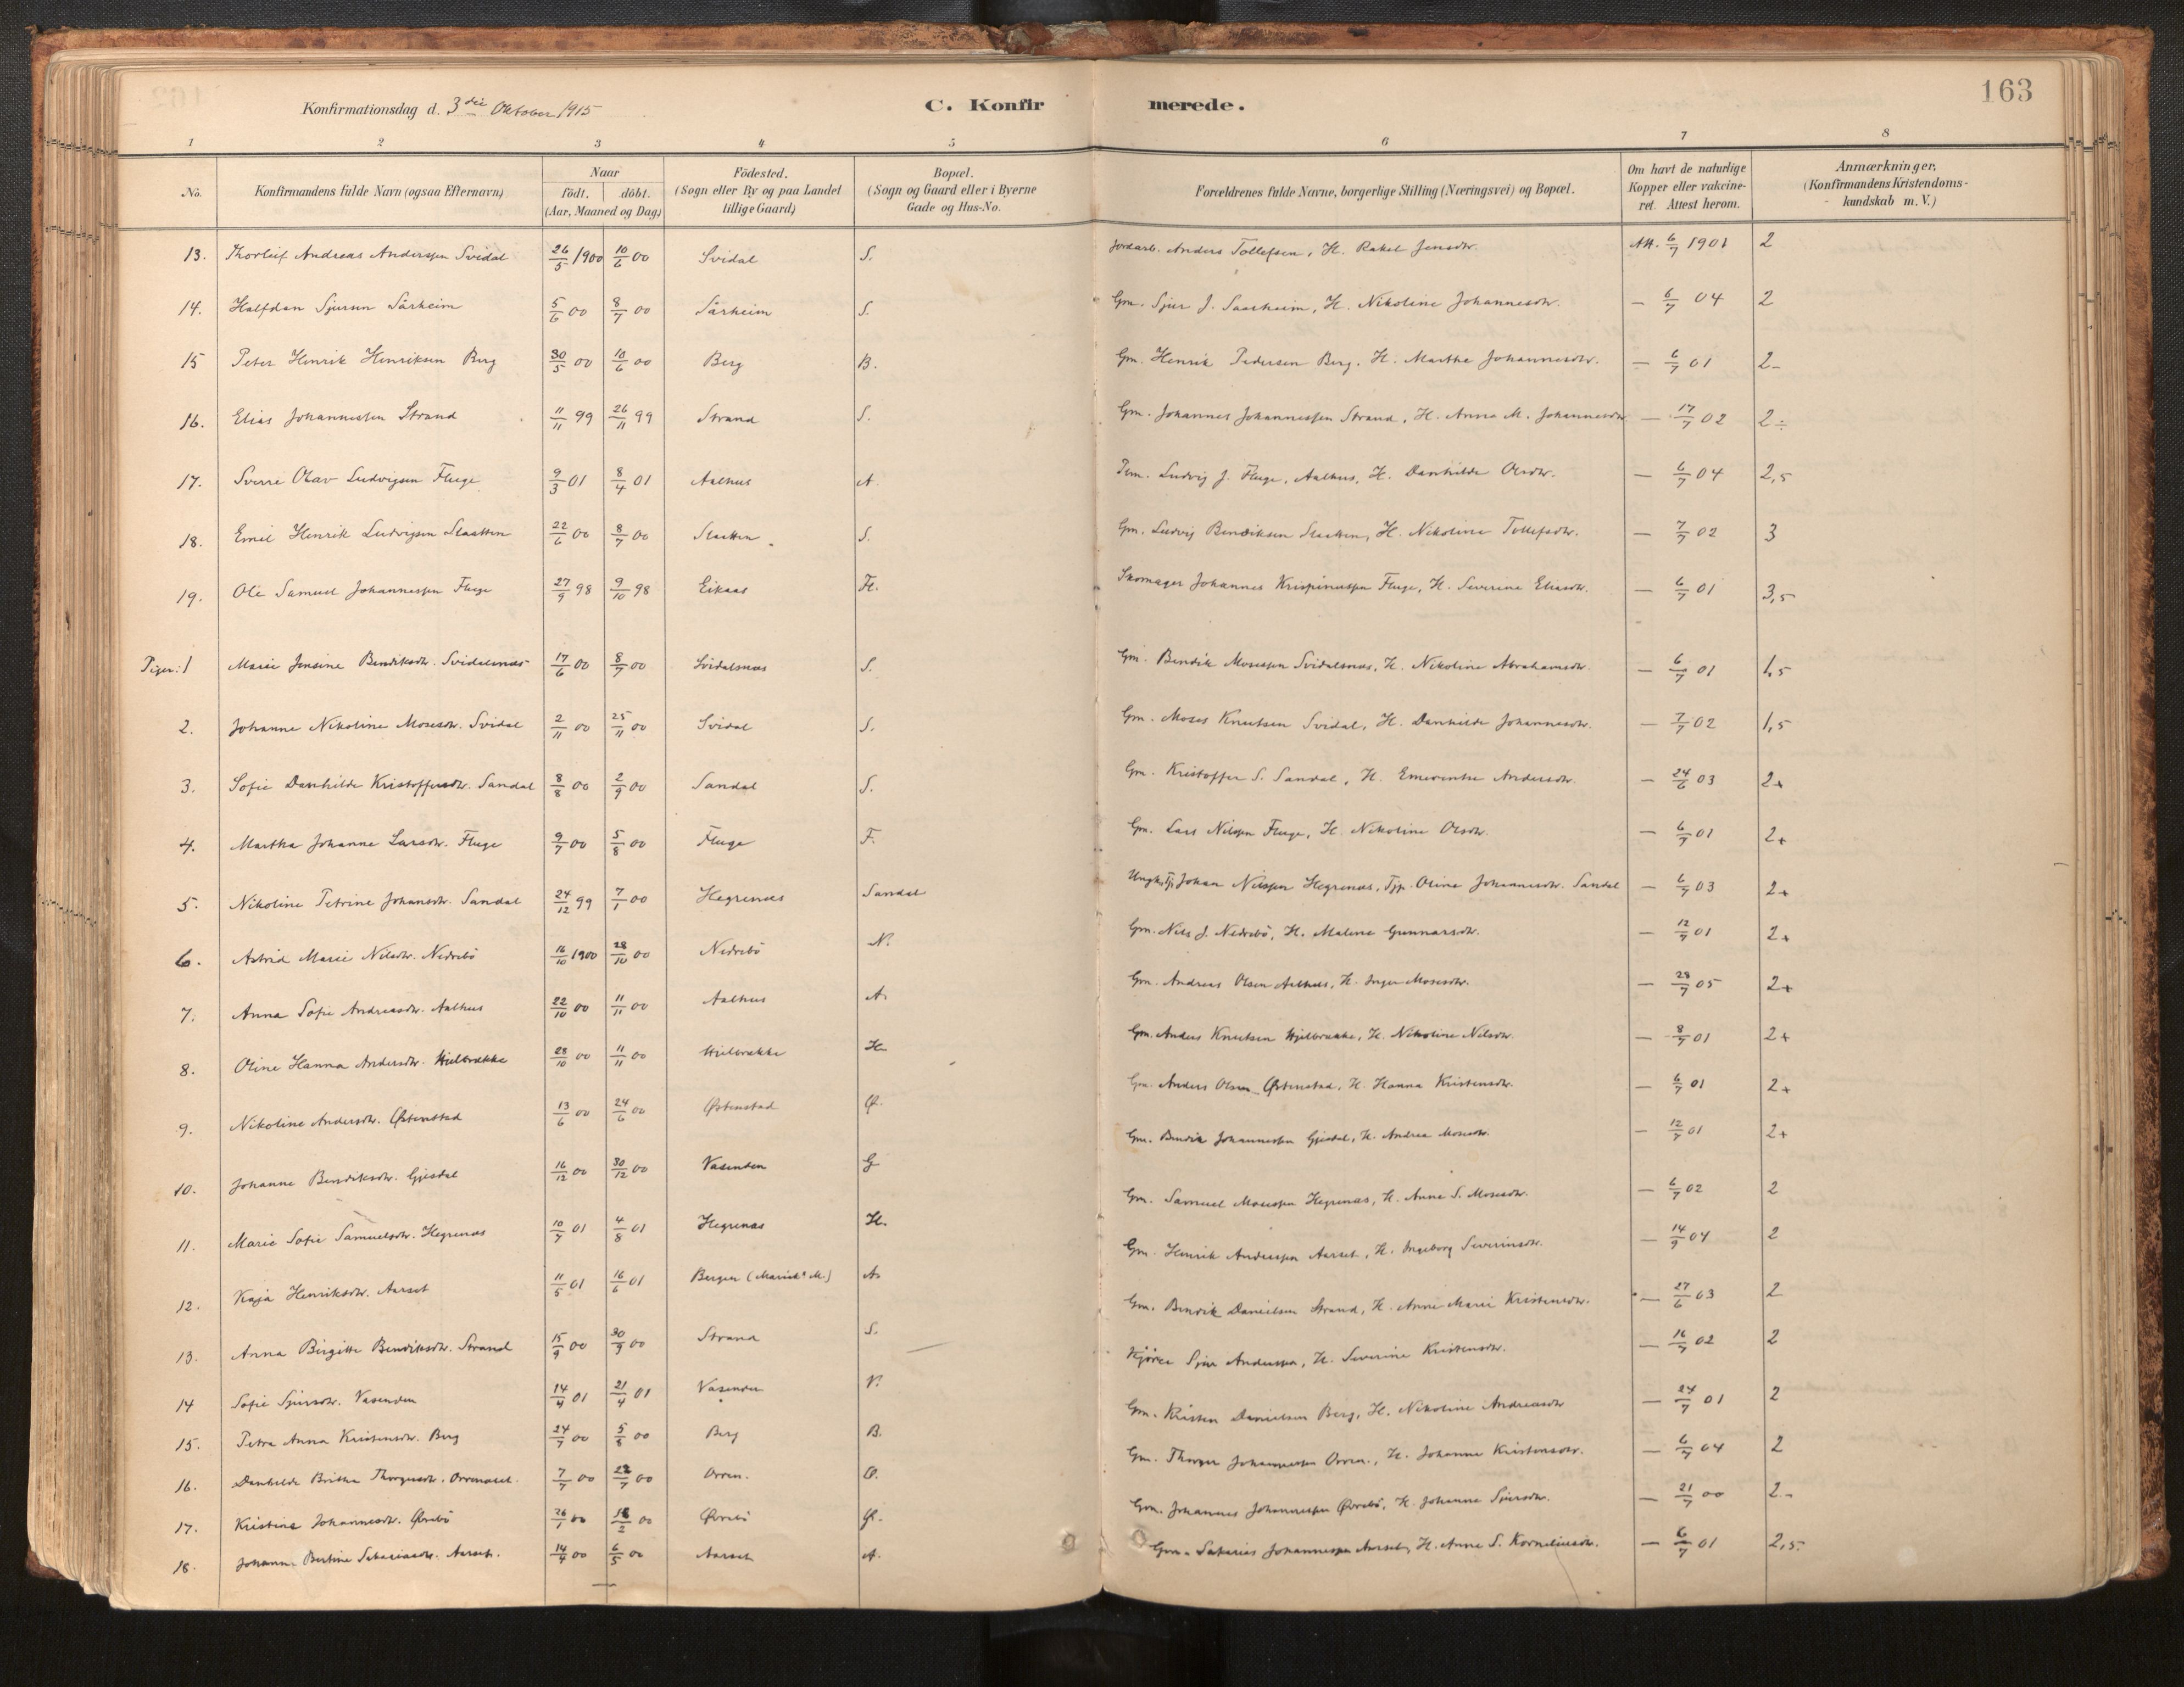 163
Konfirmationsdag d. 3die Oktober 1915
C. Konfirmerede.
1 2 3 4 5 6 7 8
No. Konfirmandens fulde Navn (ogsaa Efternavn) Naar födt. döbt. (Aar, Maaned og Dag) Födested. (Sogn eller By og paa Landet tillige Gaard) Bopæl. (Sogn og Gaard eller i Byerne Gade og Hus-No. Forældrenes fulde Navne, borgerlige Stilling (Næringsvei) og Bopæl. Om havt de naturlige Kopper eller vakcineret. Attest herom. Anmærkninger, (Konfirmandens Kristendomskundskab m. V.)
13. Thorleif Andreas Anderssen Svidal 26/5 1900 10/6 00 Svidal S. Jordarb. Anders Tollefsen, H. Rakel Jensdtr. Att. 6/7 1901 2
14. Halfdan Sjursen Sårheim 5/6 00 8/7 00 Sårheim S. Gm. Sjur J. Saarheim, H. Nikoline Johannesdtr. — 6/7 04 2
15 Peter Henrik Henriksen Berg 30/5 00 10/6 00 Berg B. Gm. Henrik Pedersen Berg, H. Marthe Johannesdtr. — 6/7 01 2-
16. Elias Johannessen Strand 11/11 99 26/11 99 Strand S. Gm. Johannes Johannessen Strand, H. Anna M. Johannesdtr — 17/7 02 2÷
17. Sverre Olav Ludvigsen Fluge 9/3 01 8/4 01 Aalhus A. Ludvig J. Fluge, Aalhus, H. Danhilde Olsdtr. — 6/7 04 2,5
18. Emil Henrik Ludvigsen Slaatten 22/6 00 8/7 00 Slaatten S. Gm. Ludvig Bendiksen Slaatten, H. Nikoline Tollefsdtr. — 7/7 02 3
19. Ole Samuel Johannessen Fluge 27/9 98 9/10 98 Eikaas Fl. Skomager Johannes Krispinussen Fluge, H. Severine Eliasdtr. — 6/7 01 3,5
Piger: 1 Marie Jensine Bendiksdtr. Svidalsnæs 17/6 00 8/7 00 Svidalsnæs S. Gm. Bendik Mosessen Svidalsnæs, H. Nikoline Abrahamsdtr. — 6/7 01 1,5
2. Johanne Nikoline Mosesdtr. Svidal 2/11 00 25/11 00 Svidal S. Gm. Moses Knutsen Svidal, H. Danhilde Johannesdtr. — 7/7 02 1,5
3. Sofie Danhilde Kristoffersdtr. Sandal 8/8 00 2/9 00 Sandal S. Gm. Kristoffer S. Sandal, H. Emerentse Andersdtr. — 24/6 03 2+
4. Martha Johanne Larsdtr. Fluge 9/7 00 5/8 00 Fluge F. Gm. Lars Nilssen Fluge, H. Nikoline Olsdtr. — 6/7 01 2+
5. Nikoline Petrine Johansdtr. Sandal 24/12 99 7/1 00 Hegrenæs Sandal Ungk. Tj. Johan Nilssen Hegrenæs, Tjp. Oline Johannesdtr. Sandal — 6/7 03 2+
6. Astrid Marie Nilsdtr. Nedrebö 16/10 1900 28/10 00 Nedrebö N. Gm. Nils J. Nedrebö, H. Malene Gunnarsdtr. — 12/7 01 2+
7. Anna Sofie Andreasdtr. Aalhus 22/10 00 11/11 00 Aalhus A. Gm. Andreas Olsen Aalhus, H. Inger Mosesdtr. — 28/7 05 2+
8. Oline Hanna Andersdtr. Hjelbrække 28/10 00 11/11 00 Hjelbrække H. Gm. Anders Knutsen Hjelbrække, H. Nikoline Nilsdtr. — 8/7 01 2+
9. Nikoline Andersdtr. Østenstad 13/6 00 24/6 00 Østenstad Ø. Gm. Anders Olsen Østenstad, H. Hanna Kristensdtr. — 6/7 01 2+
10. Johanne Bendiksdtr. Gjesdal 16/12 00 30/12 00 Vasenden G Gm. Bendik Johannessen Gjesdal, H. Andrea Mosesdtr. — 12/7 01 2+
11. Marie Sofie Samuelsdtr. Hegrenæs 10/7 01 4/8 01 Hegrenæs H. Gm. Samuel Mosessen Hegrenæs, H. Anne S. Mosesdtr. — 6/7 02 2
12. Kaja Henriksdtr. Aarset 11/5 01 16/6 01 Bergen (Mariak. M.) A. Gm. Henrik Anderssen Aarset, H. Ingeborg Severinsdtr. — 14/9 04 2
13. Anna Birgitte Bendiksdtr. Strand 15/9 00 30/9 00 Strand S. Gm. Bendik Danielsen Strand, H. Anne Marie Kristensdtr. — 27/6 03 2
14 Sofie Sjursdtr. Vasenden 14/4 01 21/4 01 Vasenden V. Sjur Anderssen, H. Severine Kristensdtr. — 16/7 02 2
15. Petra Anna Kristensdtr. Berg 24/7 00 5/8 00 Berg B. Gm. Kristen Danielsen Berg, H. Nikoline Andreasdtr — 24/7 01 2
16. Danhilde Britha Thorgersdtr. 7/7 00 22/7 00 Orren. O. Gm. Thorger Johannessen Orren., H. Johanne Kristensdtr. — 6/7 04 2
17. Kristine Johannesdtr. Øvrebö 26/1 00 18/2 00 Øvrebö Ø. Gm. Johannes Johannessen Øvrebö, H. Johanne Sjursdtr. — 21/7 00 2-
18. Johanne Bertine Sakariasdtr. Aarset. 14/4 00 6/5 00 Aarset A. Gm. Sakarias Johannessen Aarset, H. Anne S. Korneliusdtr. — 6/7 01 2,5